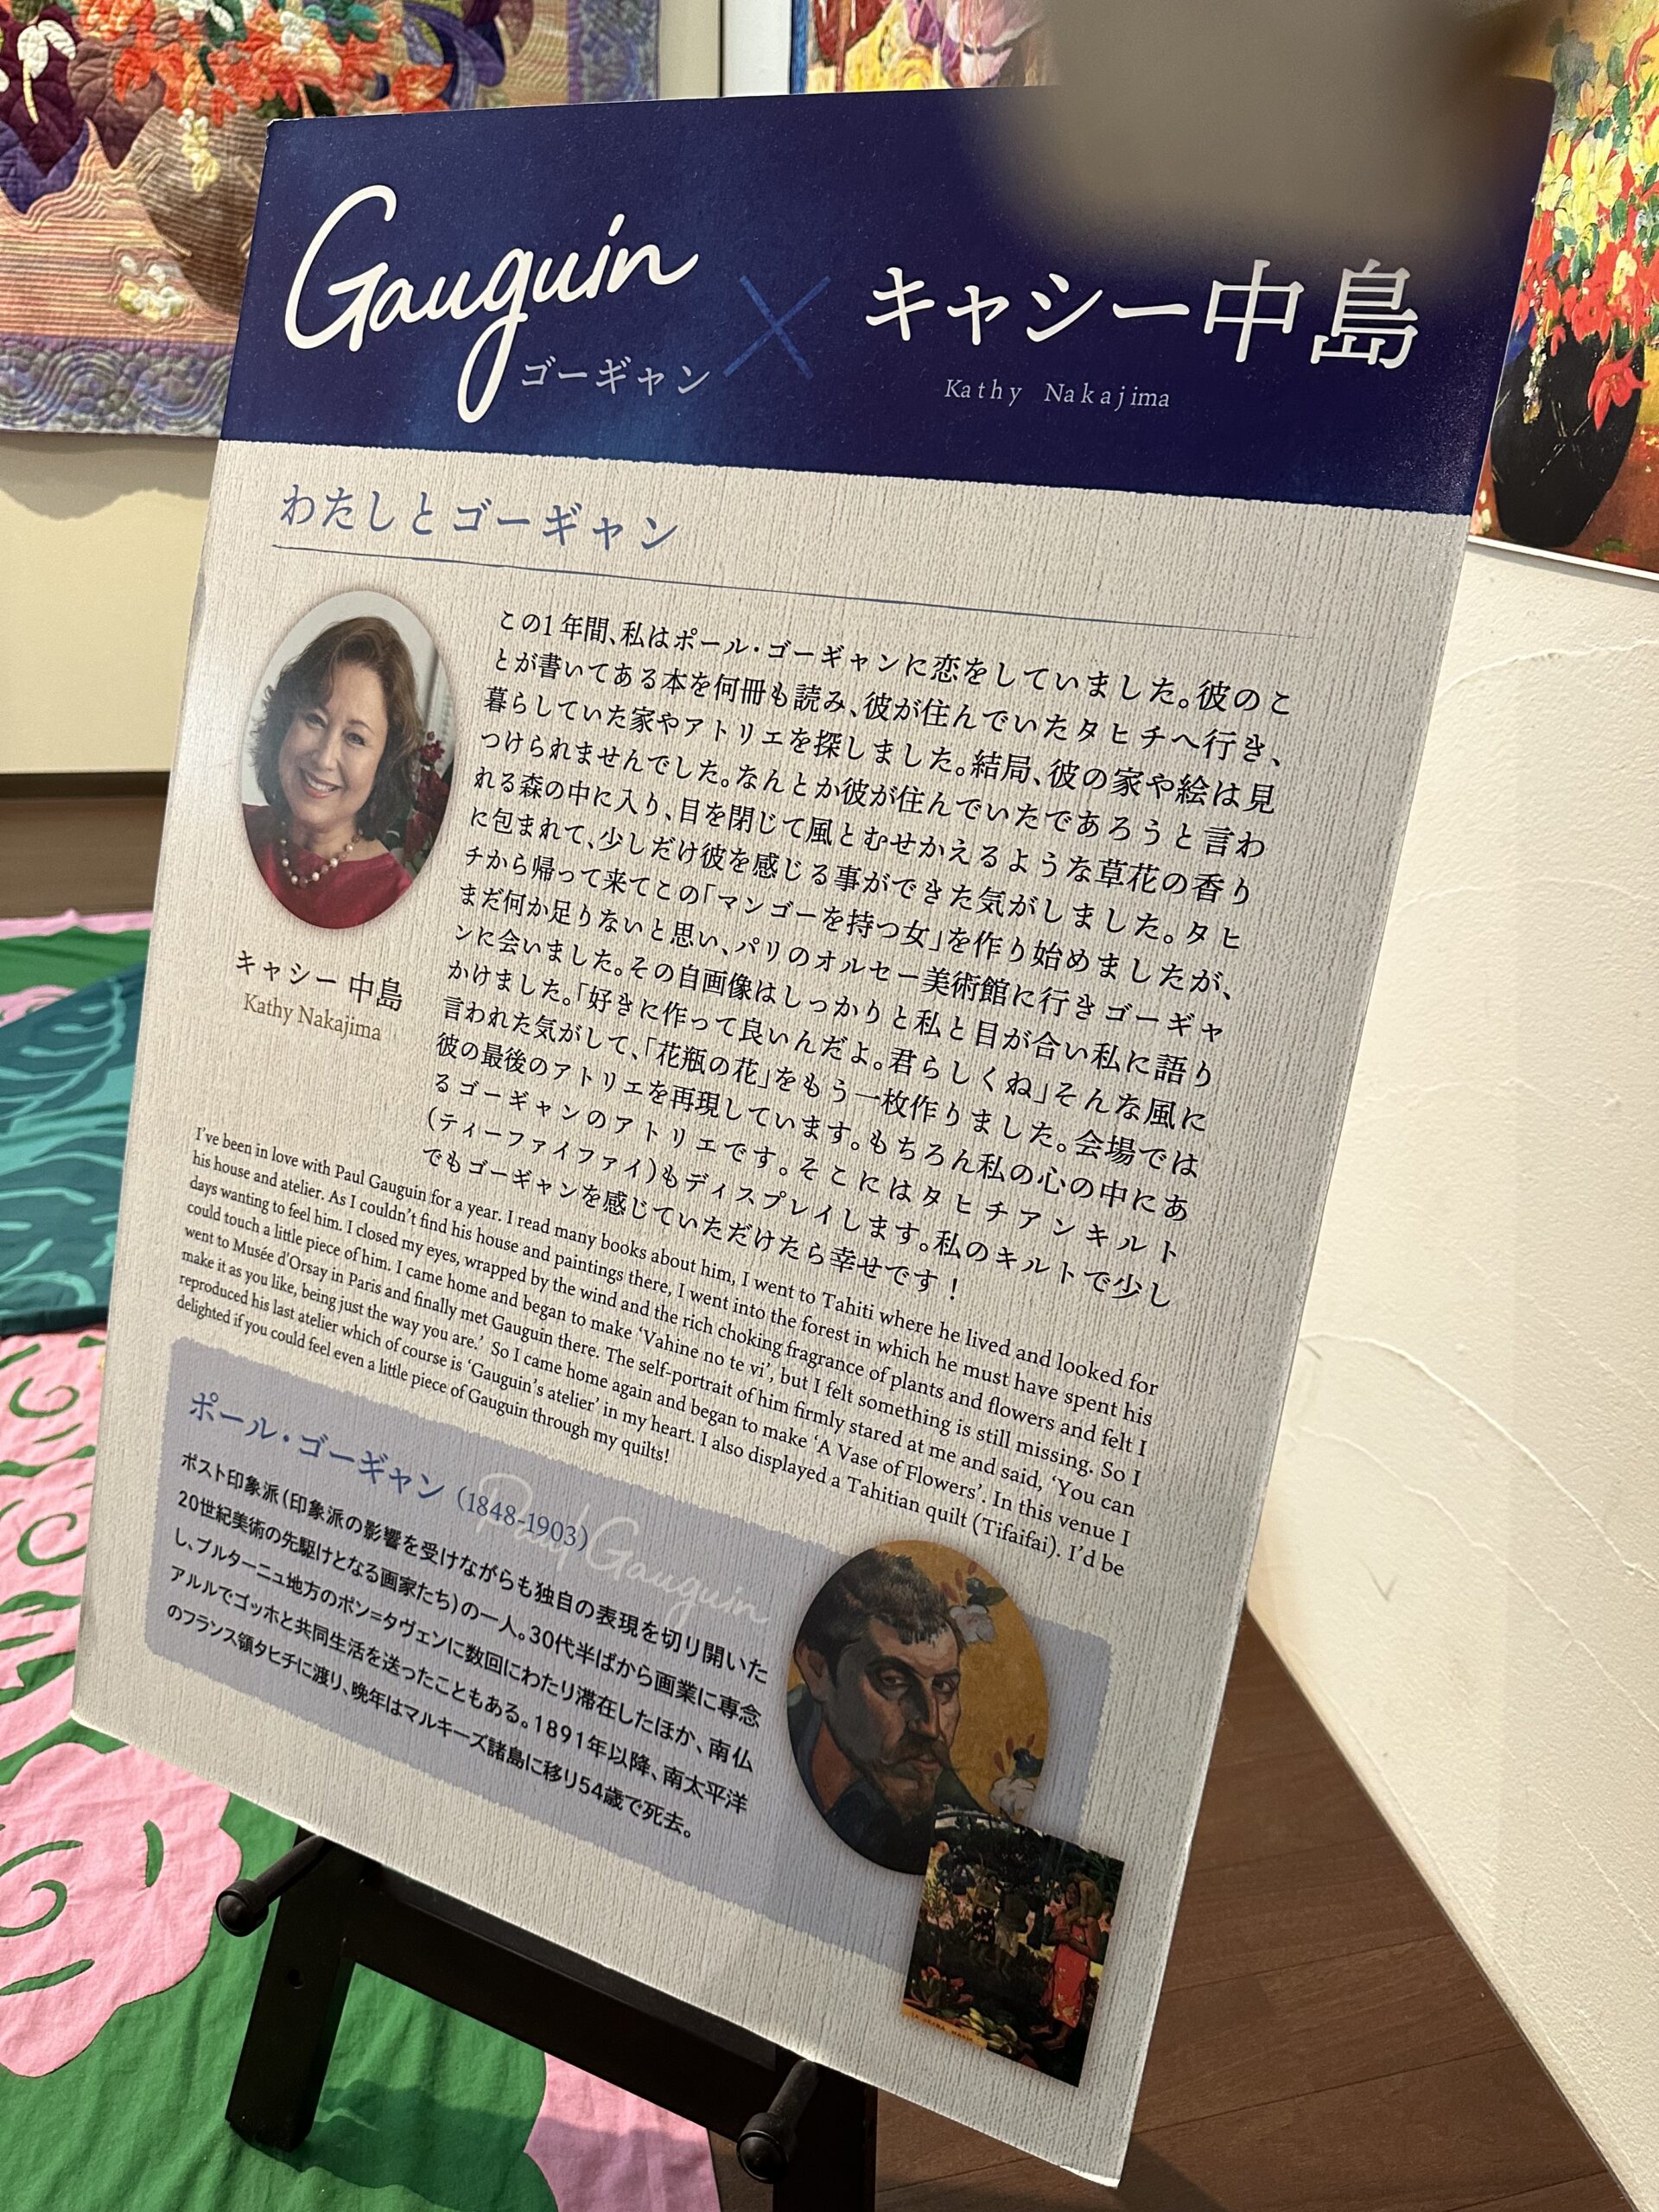 Gauguin
ゴーギャン
×
キャシー中島
Kathy Nakajima
わたしとゴーギャン
この1年間、私はポール・ゴーギャンに恋をしていました。彼のこ
とが書いてある本を何冊も読み、彼が住んでいたタヒチへ行き、
暮らしていた家やアトリエを探しました。結局、彼の家や絵は見
つけられませんでした。なんとか彼が住んでいたであろうと言わ
れる森の中に入り、目を閉じて風とむせかえるような草花の香り
に包まれて、少しだけ彼を感じる事ができた気がしました。タヒ
チから帰って来てこの「マンゴーを持つ女」を作り始めましたが、
まだ何か足りないと思い、パリのオルセー美術館に行きゴーギャ
ンに会いました。その自画像はしっかりと私と目が合い私に語り
かけました。「好きに作って良いんだよ。君らしくね」そんな風に
言われた気がして、「花瓶の花」をもう一枚作りました。会場では
彼の最後のアトリエを再現しています。もちろん私の心の中にあ
るゴーギャンのアトリエです。そこにはタヒチアンキルト
(ティーファイファイ)もディスプレイします。私のキルトで少し
でもゴーギャンを感じていただけたら幸せです！
キャシー 中島
Kathy Nakajima
I've been in love with Paul Gauguin for a year. I read many books about him, I went to Tahiti where he lived and looked for
his house and atelier. As I couldn't find his house and paintings there, I went into the forest in which he must have spent his
days wanting to feel him. I closed my eyes, wrapped by the wind and the rich choking fragrance of plants and flowers and felt I
could touch a little piece of him. I came home and began to make 'Vahine no te vi', but I felt something is still missing. So I
went to Musée d'Orsay in Paris and finally met Gauguin there. The self-portrait of him firmly stared at me and said, 'You can
make it as you like, being just the way you are.' So I came home again and began to make 'A Vase of Flowers'. In this venue I
reproduced his last atelier which of course is 'Gauguin's atelier' in my heart. I also displayed a Tahitian quilt (Tifaifai). I'd be
delighted if you could feel even a little piece of Gauguin through my quilts!
ポール・ゴーギャン (1848-1903)
Paul Gauguin
ポスト印象派(印象派の影響を受けながらも独自の表現を切り開いた
20世紀美術の先駆けとなる画家たち)の一人。30代半ばから画業に専念
し、ブルターニュ地方のポン=タヴェンに数回にわたり滞在したほか、南仏
アルルでゴッホと共同生活を送ったこともある。1891年以降、南太平洋
のフランス領タヒチに渡り、晩年はマルキーズ諸島に移り54歳で死去。